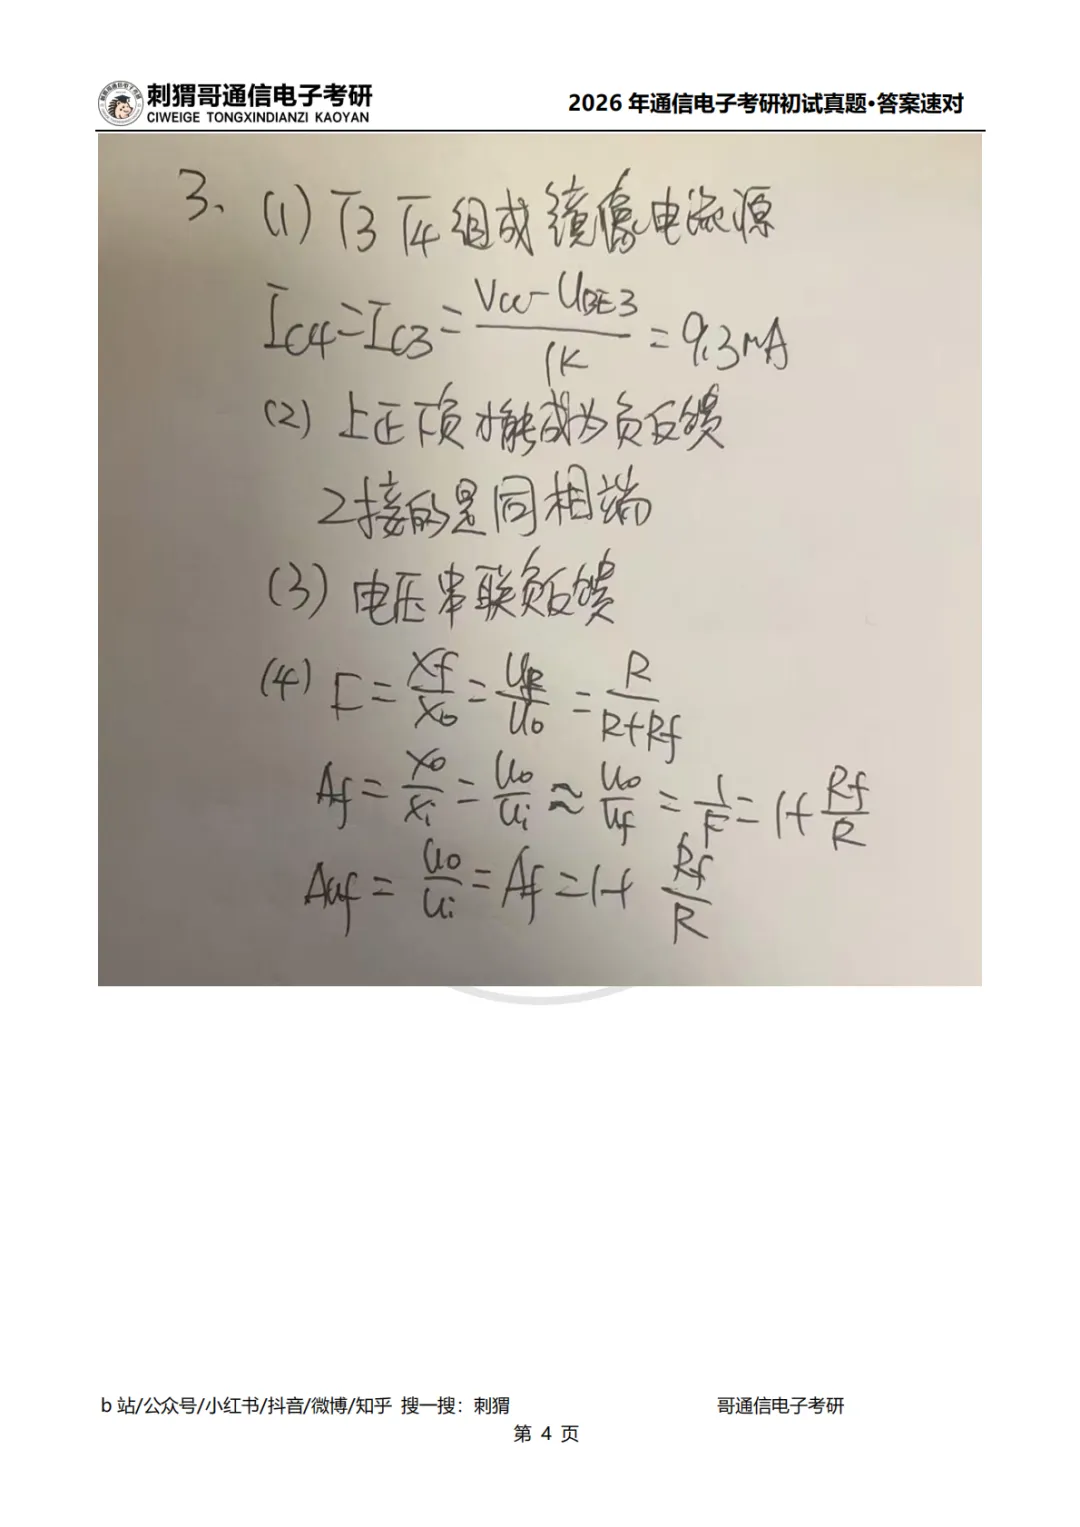 刺猬哥通信电子考研
CIWEIGE TONGXINDIANZI KAOYAN
2026 年通信电子考研初试真题·答案速对
3、(1) T3 T4 组成镜像电流源
IC4=IC3=(VCC-UBE3)/1K=9.3mA
(2) 上正下负才能成为负反馈
2接的是同相端
(3) 电压串联负反馈
(4) F=Xf/Xo=UR/Uo=R/(R+Rf)
Af=Xo/Xi=Uo/Ui≈Uo/Uf=1/F=1+Rf/R
Auf=Uo/Ui=Af=1+Rf/R
b 站/公众号/小红书/抖音/微博/知乎 搜一搜：刺猬
哥通信电子考研
第 4 页